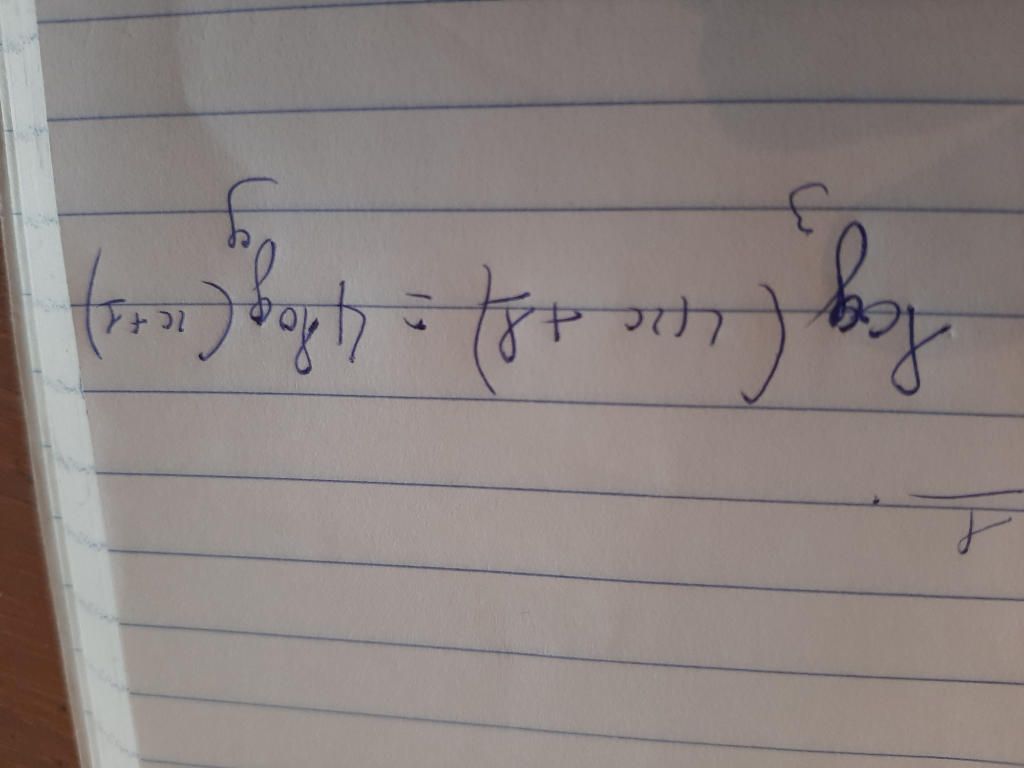 1.
log₃ (4x + 8) = 4 log₉ (x+1)